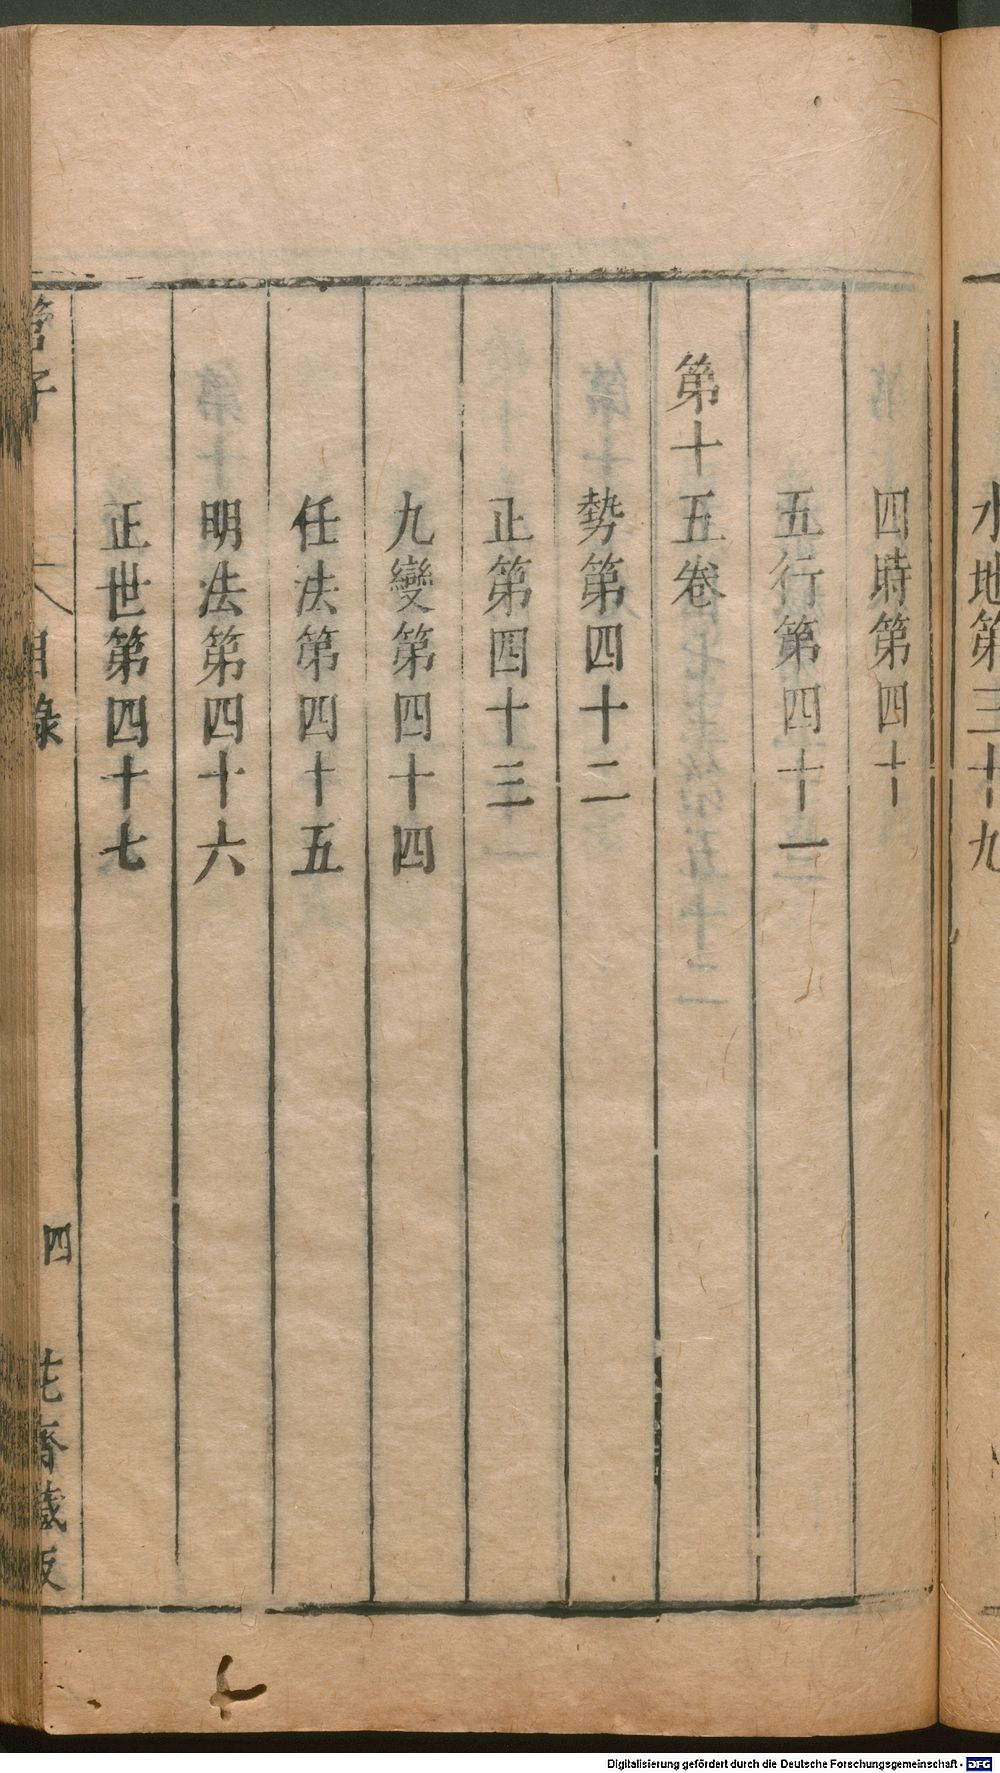 水地第三十九
四時第四十
五行第四十一
第十五卷
勢第四十二
正第四十三
九變第四十四
任法第四十五
明法第四十六
正世第四十七
管子 目錄 四 花齋藏板
Digitalisierung gefördert durch die Deutsche Forschungsgemeinschaft - DFG